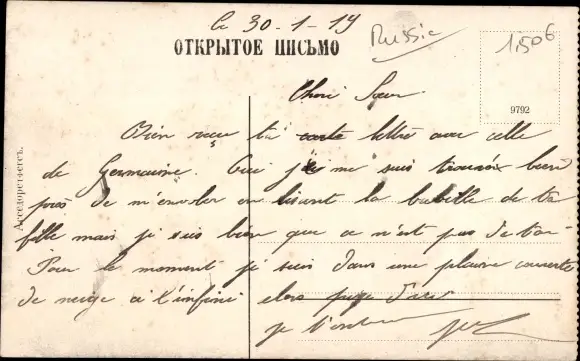 le 30-1-19
Russie
1,50€
ОТКРЫТОЕ ПИСЬМО
9792
Асседоретфегсъ.
Chère Sœur
Bien reçu ta carte lettre avec celle
de Germaine. Oui je me suis trouvé bien
près de m'envoler en lisant la babille de ta
fille mais je sais bien que ce n'est pas de ton
Pour le moment je suis dans une plaine couverte
de neige à l'infini alors juge d'ici
je t'embrasse